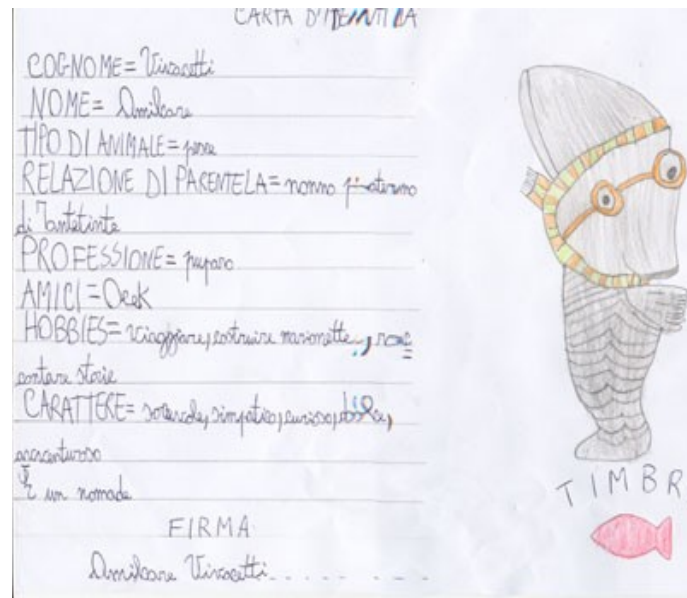 CARTA D'IDENTITÀ
COGNOME= Vivacetti
NOME= Amilcare
TIPO DI ANIMALE= pesce
RELAZIONE DI PARENTELA= nonno paterno
di Tantetinte
PROFESSIONE= puparo
AMICI= Oeek
HOBBIES= viaggiare, costruire marionette, rac=
contare storie
CARATTERE= socievole, simpatico, curioso, abile,
avventuroso
È un nomade
FIRMA
Amilcare Vivacetti
TIMBR